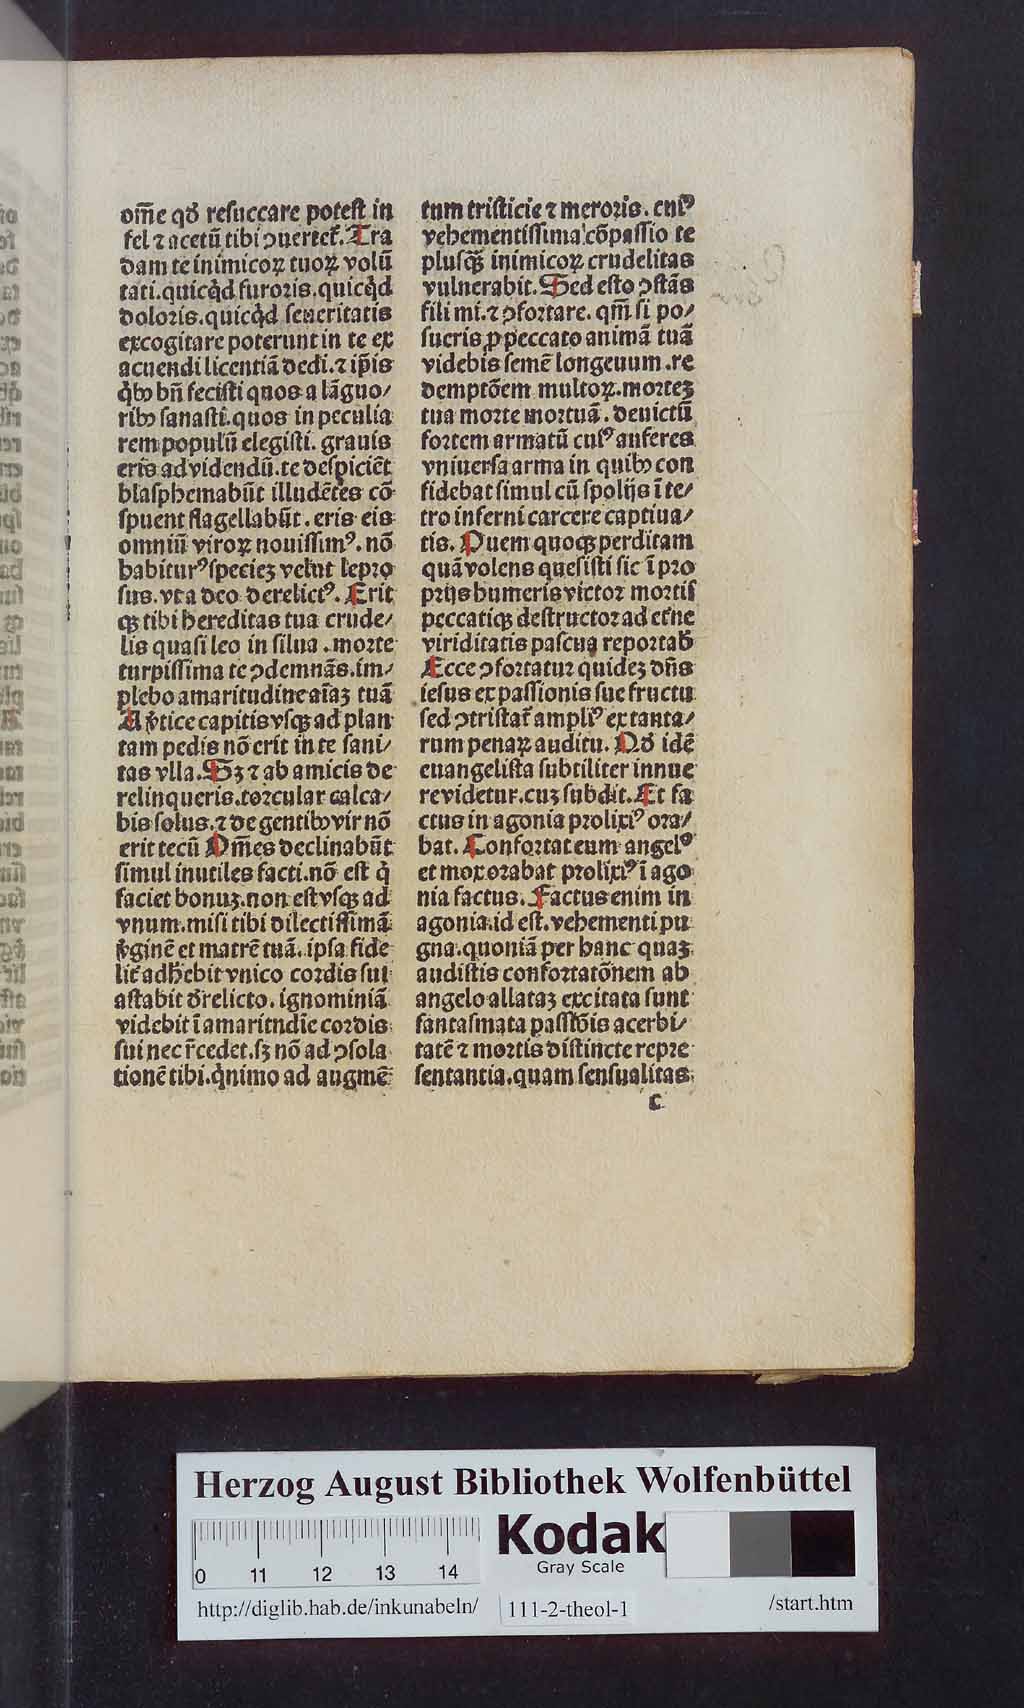 om̄e qđ resuccare potest in
fel ⁊ acetū tibi ꝯuertet᷑. Tra
dam te inimicoꝝ tuoꝝ volū
tati. quicq̇d furoris. quicq̇d
doloris. quicq̇d seueritatis
excogitare poterunt in te ex
acuendi licentiā dedi. ⁊ ip̄is
q̇bꝰ bn̄ fecisti quos a lāguo/
ribꝰ sanasti. quos in peculia
rem populū elegisti. grauis
eris ad videndū. te despiciēt
blasphemabūt illudētes cō
spuent flagellabūt. eris eis
omniū viroꝝ nouissimꝰ. nō
habiturꝰ speciez velut lepro
sus. vt a deo derelictꝰ. Erit
qꝫ tibi hereditas tua crude/
lis quasi leo in silua. morte
turpissima te ꝯdemnās. im/
plebo amaritudine aīaꝫ tuā
A v̇tice capitis vsqꝫ ad plan
tam pedis nō erit in te sani/
tas vlla. Sꝫ ⁊ ab amicis de
relinqueris. torcular calca/
bis solus. ⁊ de gentibꝰ vir nō
erit tecū Om̄es declinabūt
simul inutiles facti. nō est q̇
faciet bonuꝫ. non est vsqꝫ ad
vnum. misi tibi dilectissimā
v̇ginē et matrē tuā. ipsa fide
lit᷑ adh̄ebit vnico cordis sui
astabit đrelicto. ignominiā
videbit ī amaritudīe cordis
sui nec r̄cedet. sꝫ nō ad ꝯsola
tionē tibi. q̇nimo ad augmē
tum tristicie ⁊ meroris. cuiꝰ
vehementissima cōpassio te
plusqꝫ̄ inimicoꝝ crudelitas
vulnerabit. Sed esto ꝯstās
fili mi. ⁊ ꝯfortare. qm̄ si po/
sueris ꝓ peccato animā tuā
videbis semē longeuum. re
demptōem multoꝝ. morteꝫ
tua morte mortuā. deuictū
fortem armatū cuiꝰ auferes
vniuersa arma in quibꝰ con
fidebat simul cū spolijs ī te/
tro inferni carcere captiua/
tis. Ouem quoqꝫ perditam
quā volens quesisti sic ī pro
prijs humeris victor mortis
peccatiqꝫ destructor ad et̄ne
viriditatis pascua reportab̄
Ecce ꝯfortatur quideꝫ dn̄s
iesus ex passionis sue fructu
sed ꝯtristat᷑ ampliꝰ ex tanta/
rum penaꝝ auditu. Qđ idē
euangelista subtiliter innue
re videtur. cuꝫ subdit. Et fa
ctus in agonia prolixiꝰ ora/
bat. Confortat eum angelꝰ
et mox orabat prolixiꝰ ī ago
nia factus. Factus enim in
agonia. id est. vehementi pu
gna. quoniā per hanc quaꝫ
audistis confortatōnem ab
angelo allataꝫ excitata sunt
fantasmata passiōis acerbi/
tatē ⁊ mortis distincte repre
sentantia. quam sensualitas
c
Herzog August Bibliothek Wolfenbüttel
Kodak
Gray Scale
0 11 12 13 14
http://diglib.hab.de/inkunabeln/ 111-2-theol-1 /start.htm